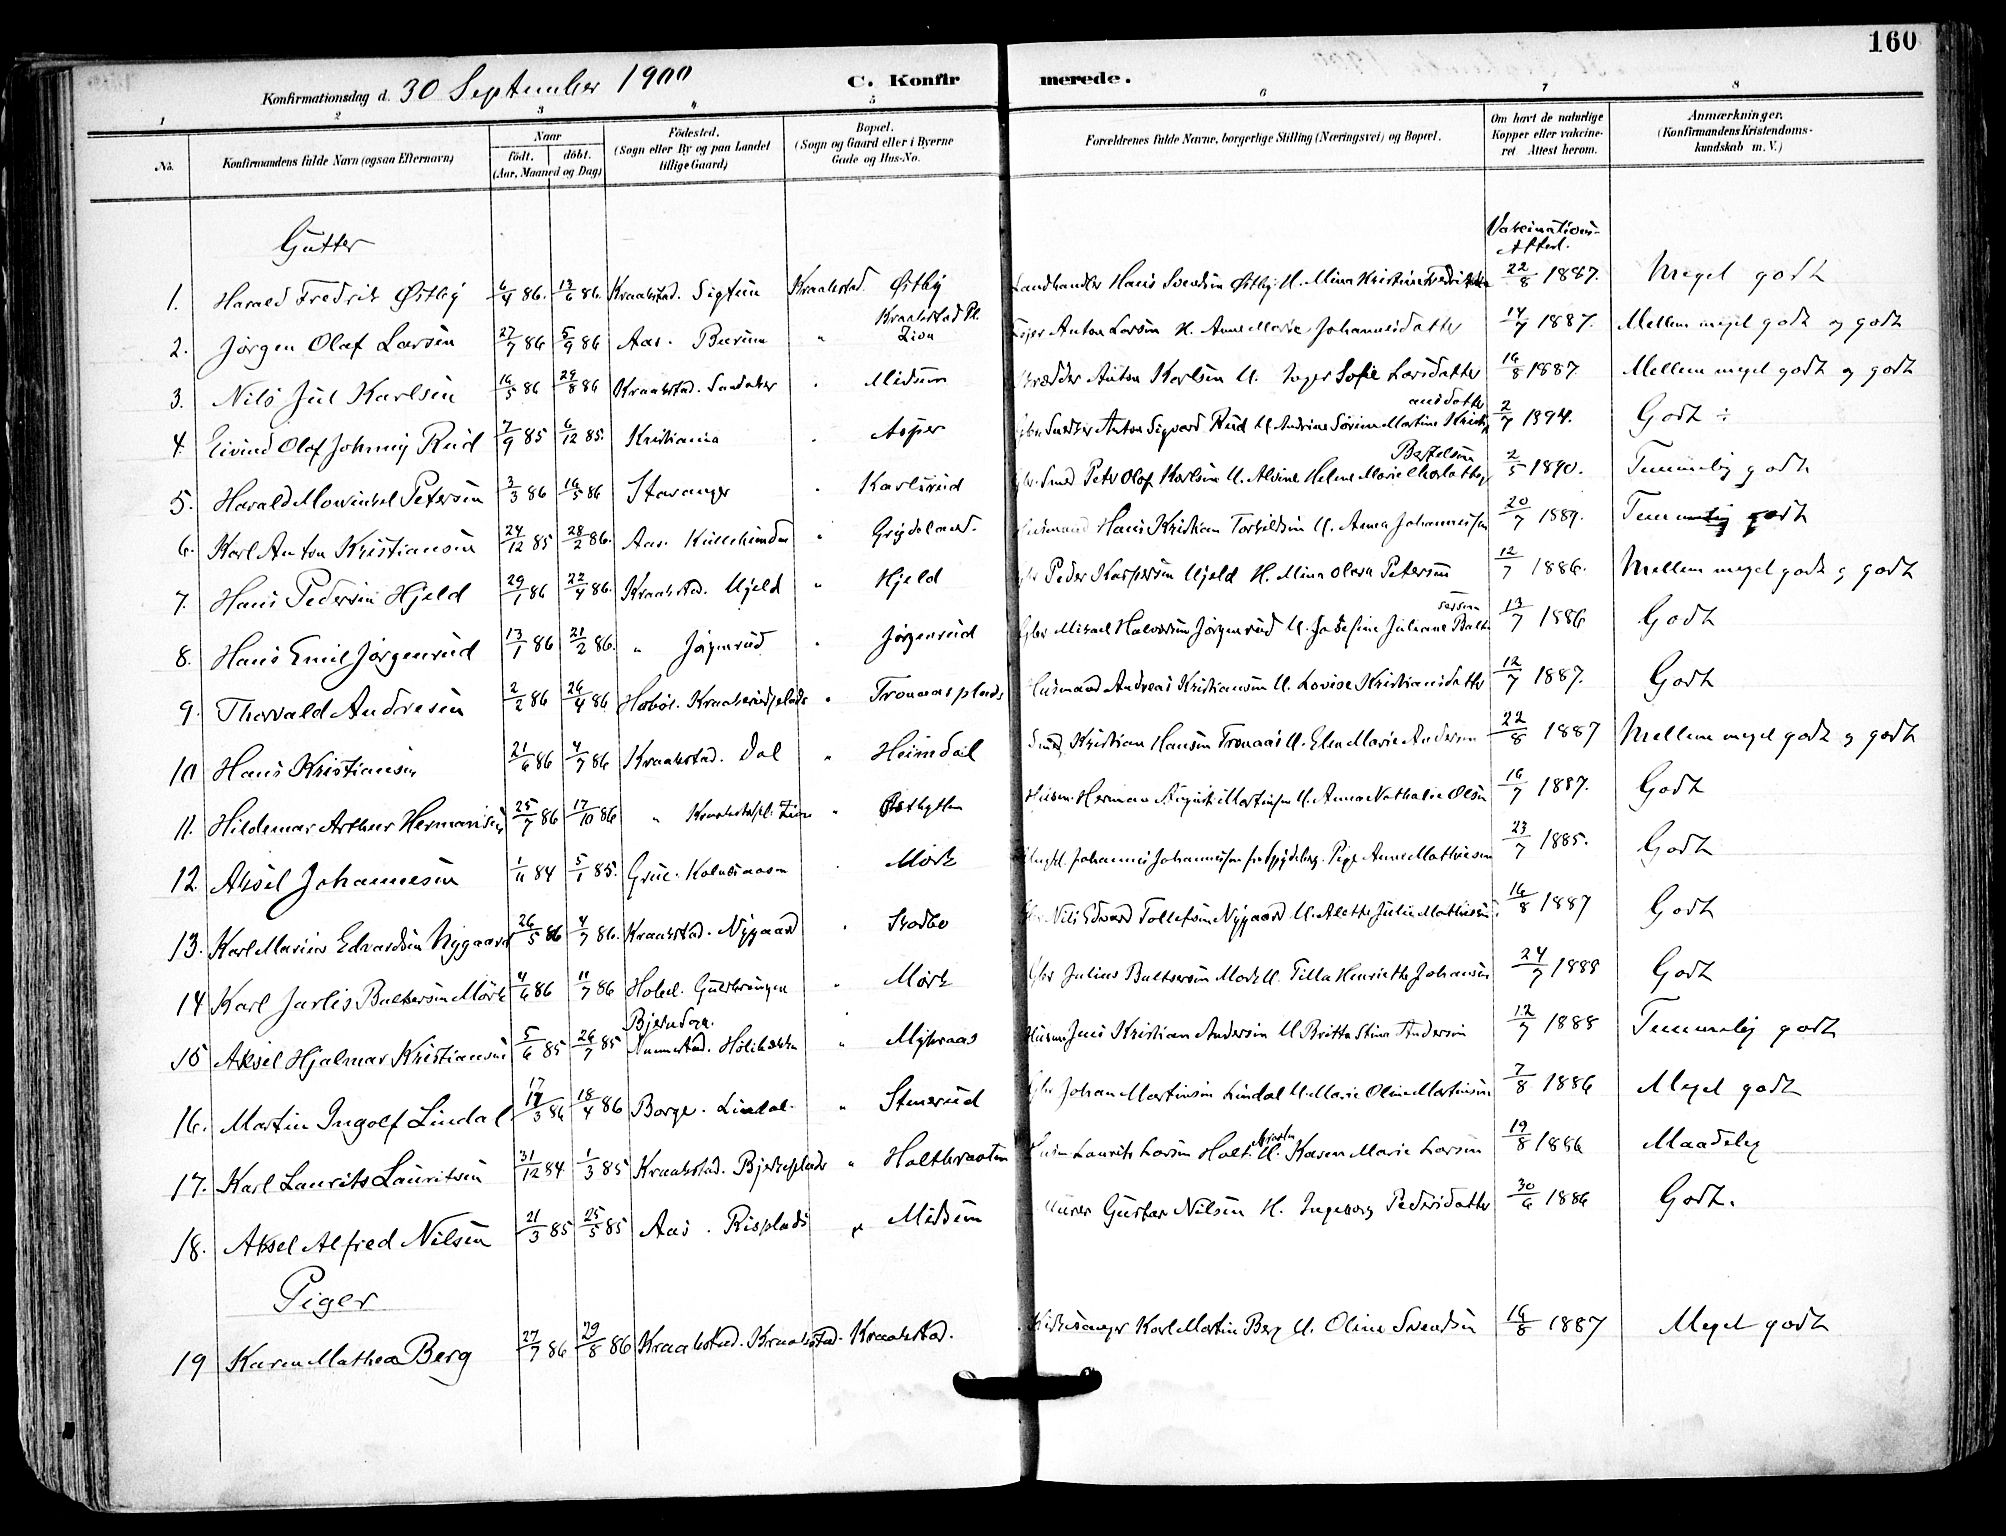 160
Konfirmationsdag d. 30 September 1900 C. Konfirmerede.
1 2 3 4 5 6 7 8
No. Konfirmandens fulde Navn (ogsaa Efternavn) Naar födt. döbt. (Aar, Maaned og Dag) Födested. (Sogn eller By og paa Landet tillige Gaard) Bopæl. (Sogn og Gaard eller i Byerne Gade og Hus-No. Forældrenes fulde Navne, borgerlige Stilling (Næringsvei) og Bopæl. Om havt de naturlige Kopper eller vaccineret Attest herom. Anmærkninger. (Konfirmandens Kristendomskundskab m. V.)
Gutter Vakcinations- Attest.
1. Harald Fredrik Østby 6/4 86. 13/6 86. Kraakstad. Sigtun Kraakstad. Østby Landhandler Hans Svendsen Østby H. Mina Kristine 22/8 1887. Meget godt
2. Jørgen Olaf Larsen 27/7 86 5/9 86 Aas. " Kraakstad Pl. Zion Anton Larsen H. Anne Marie Johannesdatter 14/7 1887. Mellem meget godt og godt
3. Nils Jul Karlsen 16/5 86 29/8 86 Kraakstad. Sandaker " Midsem Anton Karlsen H. Inger Sofie Larsdatter 16/8 1887 Mellem meget godt og godt
4. Eivind Olaf Johnny Rud 7/9 85 6/12 85. Kristiania " Asper Snedker Anton Sigvard Rud H. Andrine Sørine Martine Kristiansdatter 2/7 1894. Godt ÷
5. Harald Mowinkel Petersen 3/3 86 16/5 86 Stavanger " Karlsrud Smed Peter Olaf Karlsen H. Alvine Helene Marie Bertelsen 2/5 1890. Temmelig godt
6. Karl Anton Kristiansen 24/12 85 28/2 86. Aas. " Grydeland. Husmand Hans Kristian Torkildsen H. Anna Johannessen 20/7 1889. Temmelig godt
7. Hans Pedersen Hjeld 29/1 86 22/4 86. Kraakstad. Hjeld " Hjeld Gbr Peder Kaspersen Hjeld H. Mina Olava Petersen 12/7 1886. Mellem meget godt og godt
8. Hans Emil Jørgenrud 13/1 86 21/2 86. " Jørgenrud " Jørgenrud Gbr Misael Halvorsen Jørgenrud H. Josefine Juliane 13/7 1886 Godt
9. Thorvald Andresen 2/2 86 26/4 86 Hobøl. " Tronaasplads Husmand Andreas Kristiansen H. Lovise Kristiansdatter 12/7 1887. Godt
10 Hans Kristiansen 21/6 86 4/7 86 Kraakstad. Dal " Heimdal Smed Kristian Hansen Tronaas H. Elen Marie Andersen 22/8 1887 Mellem meget godt og godt
11. Hildemar Arthur Hermansen 25/7 86 17/10 86 " Kraakstadpl. Zion " Husm. Herman August Martinsen H. Anna Nathalie Olsen 16/7 1887. Godt
12 Aksel Johannesen 1/11 84 5/1 85. Grue. " Mørk Ungk. Johannes Johannessen fra Spydeberg. Pige Anne Mathiesen 23/7 1885. Godt
13. Karl Marius Edvardsen Nygaard 26/5 86 4/7 86. Kraakstad. Nygaard " Skodbo Nils Edvard Tollefsen Nygaard H. Alette Julie Mathiesen 16/8 1887 Godt
14 Karl Jarlis Baltsersen Mørk 4/6 86 11/7 86 Hobøl. " Mørk Gbr Julius Baltsersen Mørk H. Tilla Henriette Johansen 24/7 1888 Godt
15 Aksel Hjalmar Kristiansen 5/6 85 26/7 85 Nannestad. " Myhraas Husm. Jens Kristian Andersen H. Britta Stina Andersen 12/7 1888 Temmelig godt
16. Martin Ingolf Lindal 17/3 86 18/4 86 Borge. Lindal. " Stenerud Gbr Johan Martinsen Lindal H. Marie Oline Martinsen 7/8 1886 Meget godt
17. Karl Laurits Lauritsen 31/12 84 1/3 85 Kraakstad. Bjerkeplads " Holtbraaten Husm Laurits Larsen Holt. H. Karen Marie Larsen 19/8 1886 Maadelig
18. Aksel Alfred Nilsen 21/3 85 25/5 85 Aas. Risplads " Midsem Murer Gustav Nilsen H. Ingeborg Pedersdatter 30/6 1886 Godt.
Piger
19 Karen Mathea Berg 27/7 86 29/8 86 Kraakstad. Kraakstad. Kraakstad. Kirkesanger Karl Martin Berg H. Oline Svendsen 16/8 1887 Meget godt